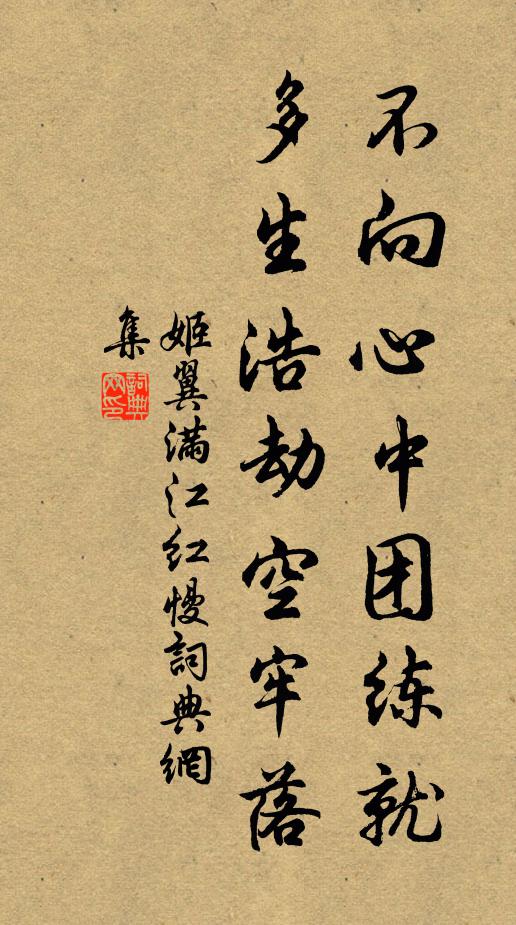 不向心中团练就
多生浩劫空牢落
姬翼满江红慢詞典網
集
詞典网印